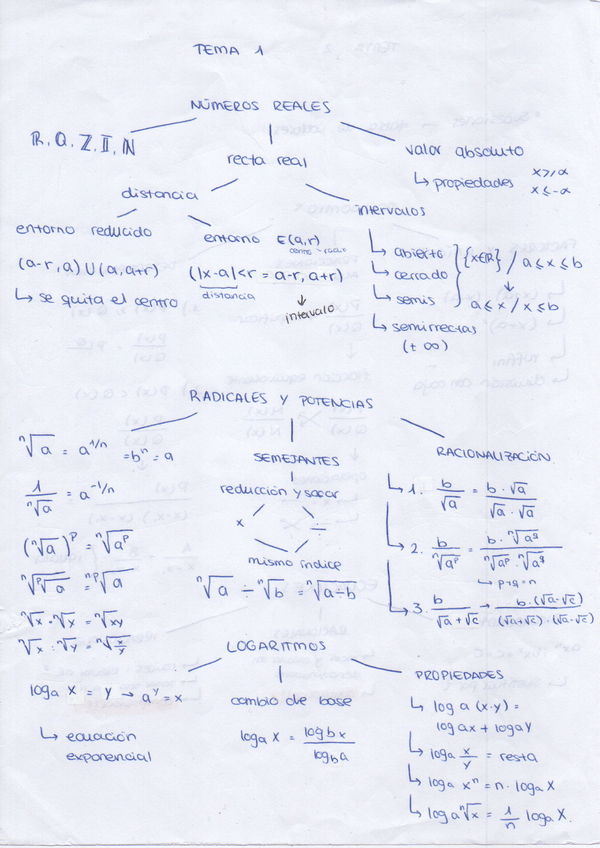 TEMA 1
NÚMEROS REALES
ℝ, Q, ℤ, 𝕀, ℕ
recta real
valor absoluto
↳ propiedades x ≥ a
x ≤ -a
distancia
intervalos
entorno reducido
(a-r, a) U (a, a+r)
↳ se quita el centro
entorno E(a,r)
(|x-a|<r = a-r, a+r)
distancia
↓
intervalo
↳ abierto
↳ cerrado
↳ semis
↳ semirrectas
(± ∞)
{x∈ℝ} / a ≤ x ≤ b
↓
a ≤ x / x ≤ b
RADICALES Y POTENCIAS
ⁿ√a = a^1/n = bⁿ = a
1/ⁿ√a = a^-1/n
(ⁿ√a)^p = ⁿ√a^p
ⁿ√ᵖ√a = ⁿᵖ√a
ⁿ√x · ⁿ√y = ⁿ√xy
ⁿ√x : ⁿ√y = ⁿ√x/y
SEMEJANTES
reducción y sacar
× ÷
mismo índice
ⁿ√a ÷ ⁿ√b = ⁿ√a÷b
RACIONALIZACIÓN
↳ 1. b/√a = b·√a / √a·√a
↳ 2. b/ⁿ√a^p = b·ⁿ√a^q / ⁿ√a^p·ⁿ√a^q
↳ p+q=n
↳ 3. b/√a+√c → b·(√a-√c) / (√a+√c)·(√a-√c)
LOGARITMOS
log a x = y → a^y = x
↳ ecuación
exponencial
cambio de base
log a x = log b x / log b a
PROPIEDADES
↳ log a (x·y) =
log a x + log a y
↳ log a x/y = resta
↳ log a xⁿ = n · log a x
↳ log a ⁿ√x = 1/n log a x.